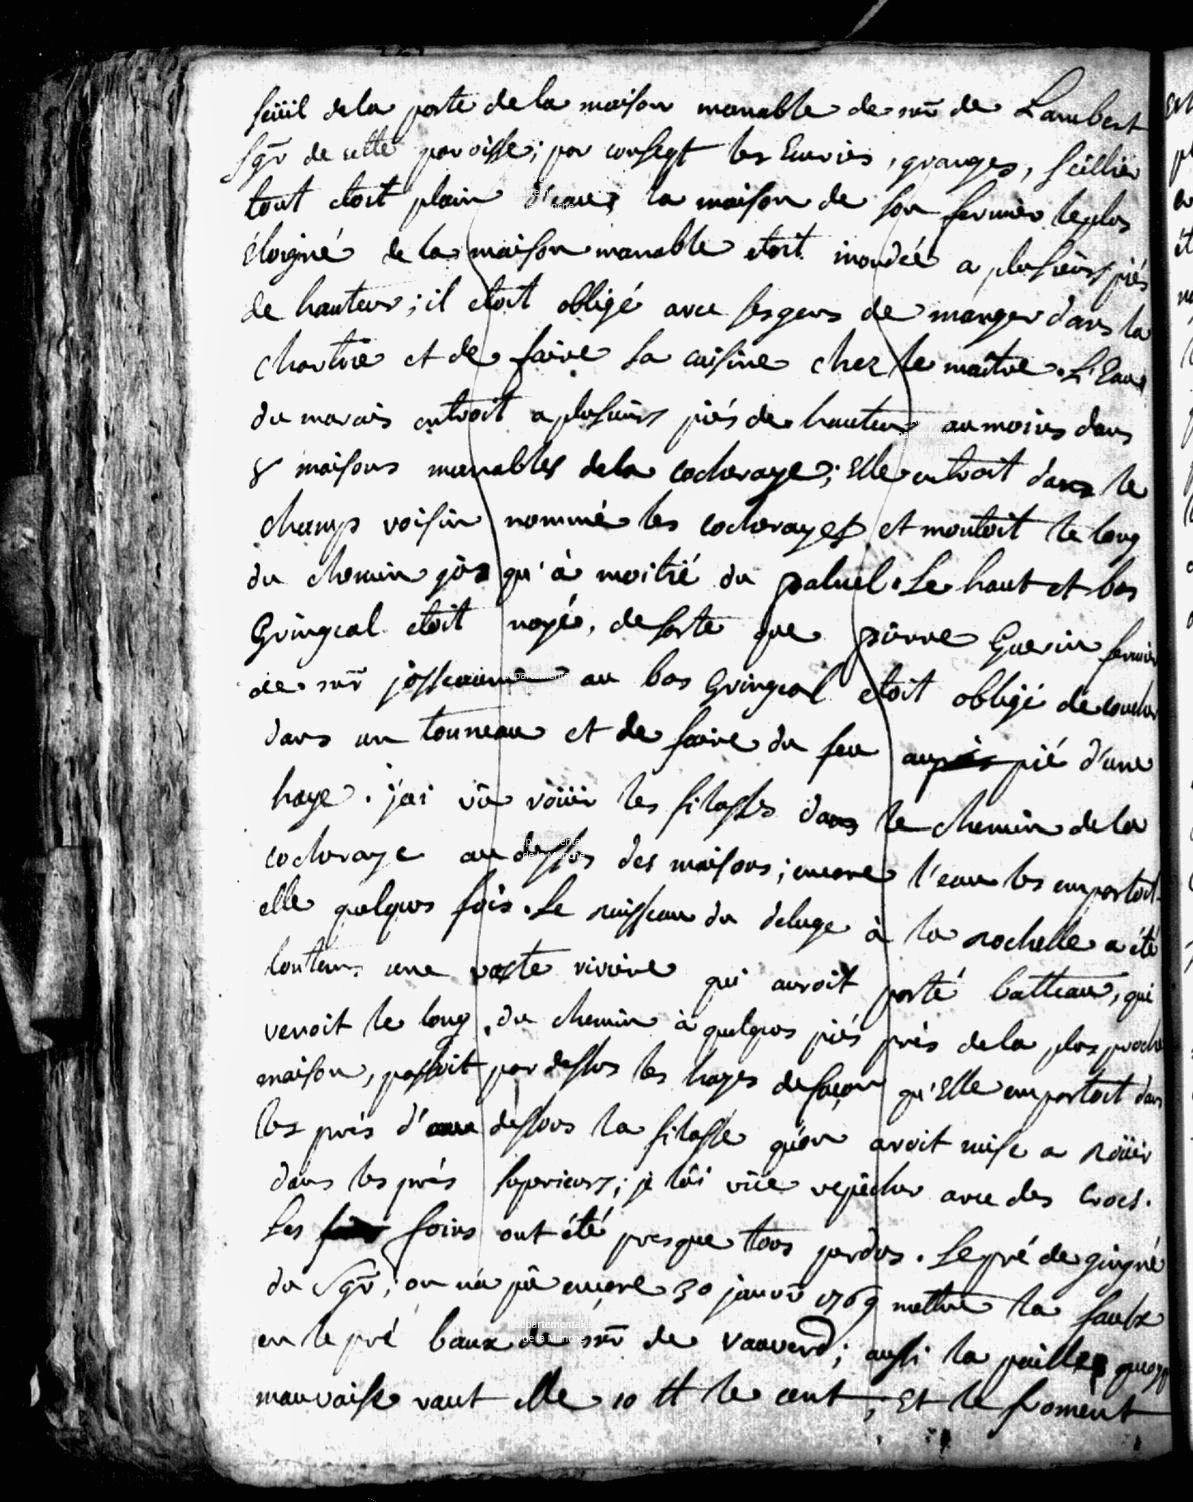 seüil de la porte de la maison manable de mr de Lambert
sgr de cette paroisse; par conseqt les Ecuries, granges, scellier
tout etoit plain d'eau; la maison de son fermier le plus
éloigné de la maison manable etoit inondée a plusieurs piés
de hauteur; il etoit obligé avec ses gens de manger dans la
chartrie et de faire sa cuisine chez le maître. L'Eau
du marais entroit a plusieurs piés de hauteur au moins dans
8 maisons manables de la cocheraye; Elle entroit dans le
champ voisin nommé les cocherayes et montoit le long
du chemin jus qu'à moitié du paluel. Le haut et bas
Gringeal etoit noyé, de sorte que pierre Guerin fermier
de mr josseaume au bas Gringeal etoit obligé de coucher
dans un tonneau et de faire du feu au pié d'une
haye. j'ai vû roüir les filasses dans le chemin de la
cocheraye au dessus des maisons; encore l'eau les emportoit
elle quelques fois. Le ruisseau du deluge à la rochelle a été
lontems une vaste riviere qui auroit porté batteau, qui
venoit le long du chemin à quelques piés près de la plus proche
maison, passoit par dessus les hayes de façon qu'Elle emportoit dans
les prés d'au dessous la filasse qu'on avoit mise a roüir
dans les prés superieurs; je l'ai vüe repêcher avec des crocs.
Les foins ont été presque tous perdus. Le pré de gingné
du Sgr; on n'a pû encore 30 janvr 1769 mettre la faulx
en le pré baux de mr de vauverd; aussi la paille
mauvaise vaut elle 10 tt le cent; Et le froment